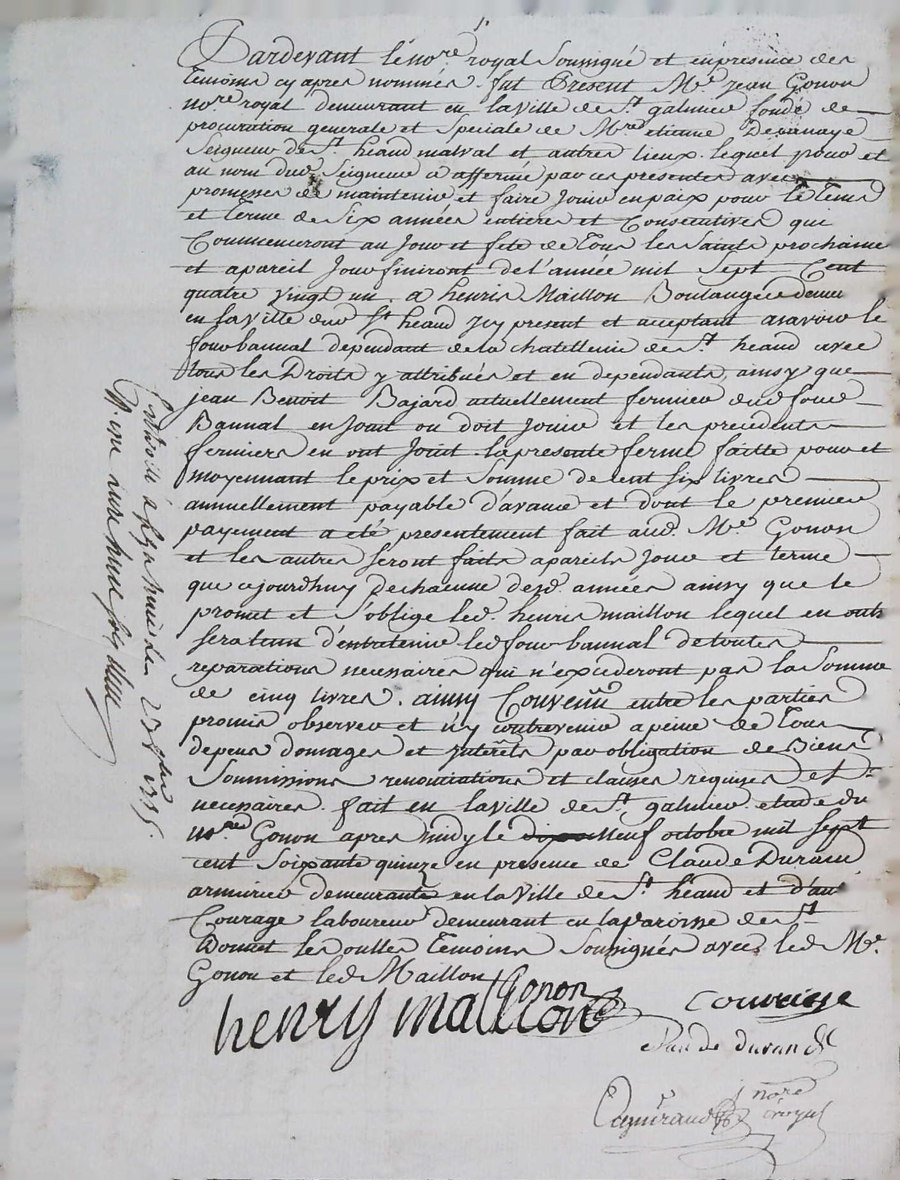 Pardevant le no.re royal Soussigné et enpresence des
temoins cy apres nommés. fut Present M.e jean Gonon
no.re royal demeurant en laville de S.t galmier fondé de
procuration generale et Speciale de M.re etienne
Seigneur de S.t heand malval et autres lieux. lequel pour et
au nom dud Seigneur a affermé par ces presentes avec
promesses de maintenir et faire Jouir enpaix pour le tems
et terme de Six années entieres et Consecutives que
Commenceront au Jour et fete de tous les Saints prochaine
et apareil Jour finiront de l'année mil Sept Cent
quatre vingt un. a henris Maillon Boulanger demeu
en laville dud S.t heand Icy present et acceptant asavoir le
four bannal dependant de la chatellenie de S.t heand avec
tous les Droits y attribués et en dependants, ainsy que
jean Benoit Bajard actuellement fermier dud four
Bannal en Jouit ou doit Jouir et les precedents
fermiers en ont Jouit. la presente ferme faitte pour et
moyennant le prix et Somme de Cent Six livres
annuellement payable d'avance et dont le premier
payement a été presentement fait aud. M.e Gonon
et les autres Seront faits apareils Jour et terme
que cejourdhuy De chacune desd. années ainsy que le
promet et S'oblige led. henris maillon lequel en outre
Sera tenu d'entretenir led four bannal de toutes
reparations necessaires qui n'excederont pas la Somme
de cinq livres. ainsy Convenu entre les parties
promis observer et n'y contrevenir a peine de tous
depens domages et Interêts par obligation de Biens
Soumissions renontiations et clauses requises et
necessaires. fait en laville de S.t galmier etude du
no.re Gonon apres midy le neuf octobre mil Sept
cent Soixante quinze en presence de Claude Durand
armurier demeurant en la Ville de S.t heand et d'an.e
Courage laboureur demeurant en laparoisse de S.t
Bonnet les oulles temoins Soussignés avec led M.e
Gonon et led Maillon
Gonon
henry maillon
Claude durand
no.re
royal
Controllé à